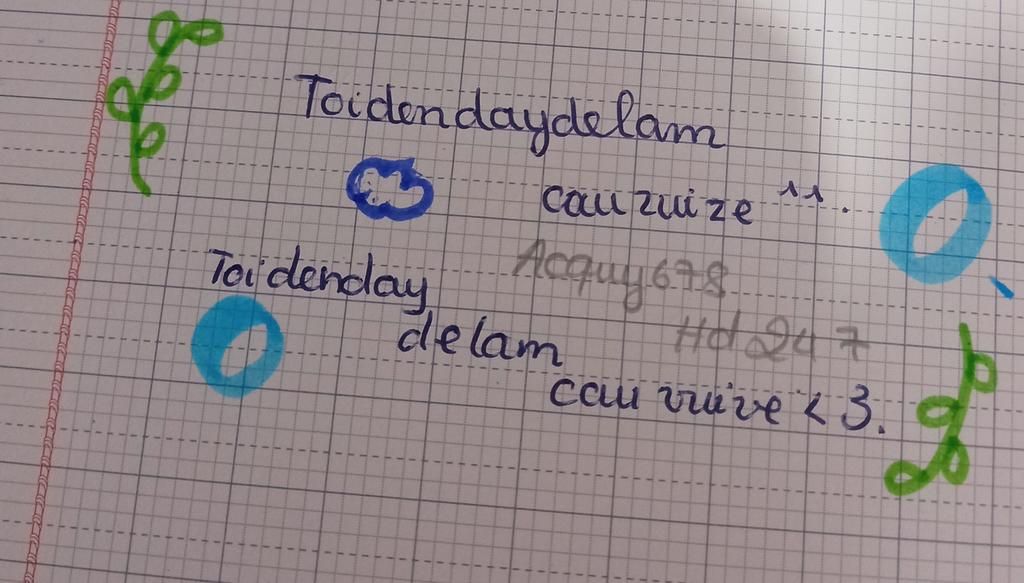 Toidendaydelam
cau zuize ^^.
Toidenday
Acquy678
delam
Hd247
cau vuive <3.